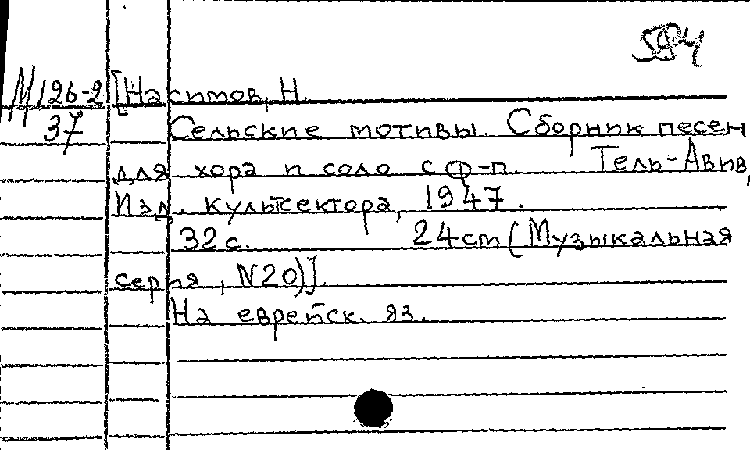 584
М126-2 [Насимов, Н.
37 Сельские мотивы. Сборник песен
для хора и соло с ф-п. Тель-Авив,
Изд. культсектора, 1947.
32с. 24cm (Музыкальная
серия, N20)].
На еврейск. яз.